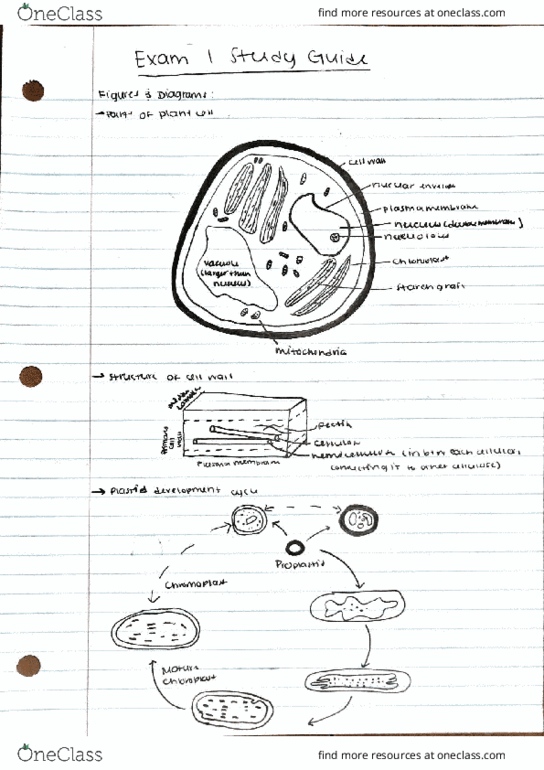 OneClass
find more resources at oneclass.com
Exam 1 Study Guide
Figures & Diagrams:
→ Parts of plant cell
cell wall
nuclear envelope
plasma membrane
nucleus (double membrane)
nucleolus
chloroplast
vacuole
(larger than
nucleus)
starch grain
mitochondria
→ structure of cell wall
middle
lamella
primary
cell
wall
pectin
cellulose
hemicellulose
connecting it to other cellulose)
plasma membrane
→ Plastid development cycle
Proplastid
Chromoplast
Mature
chloroplast
OneClass
find more resources at oneclass.com